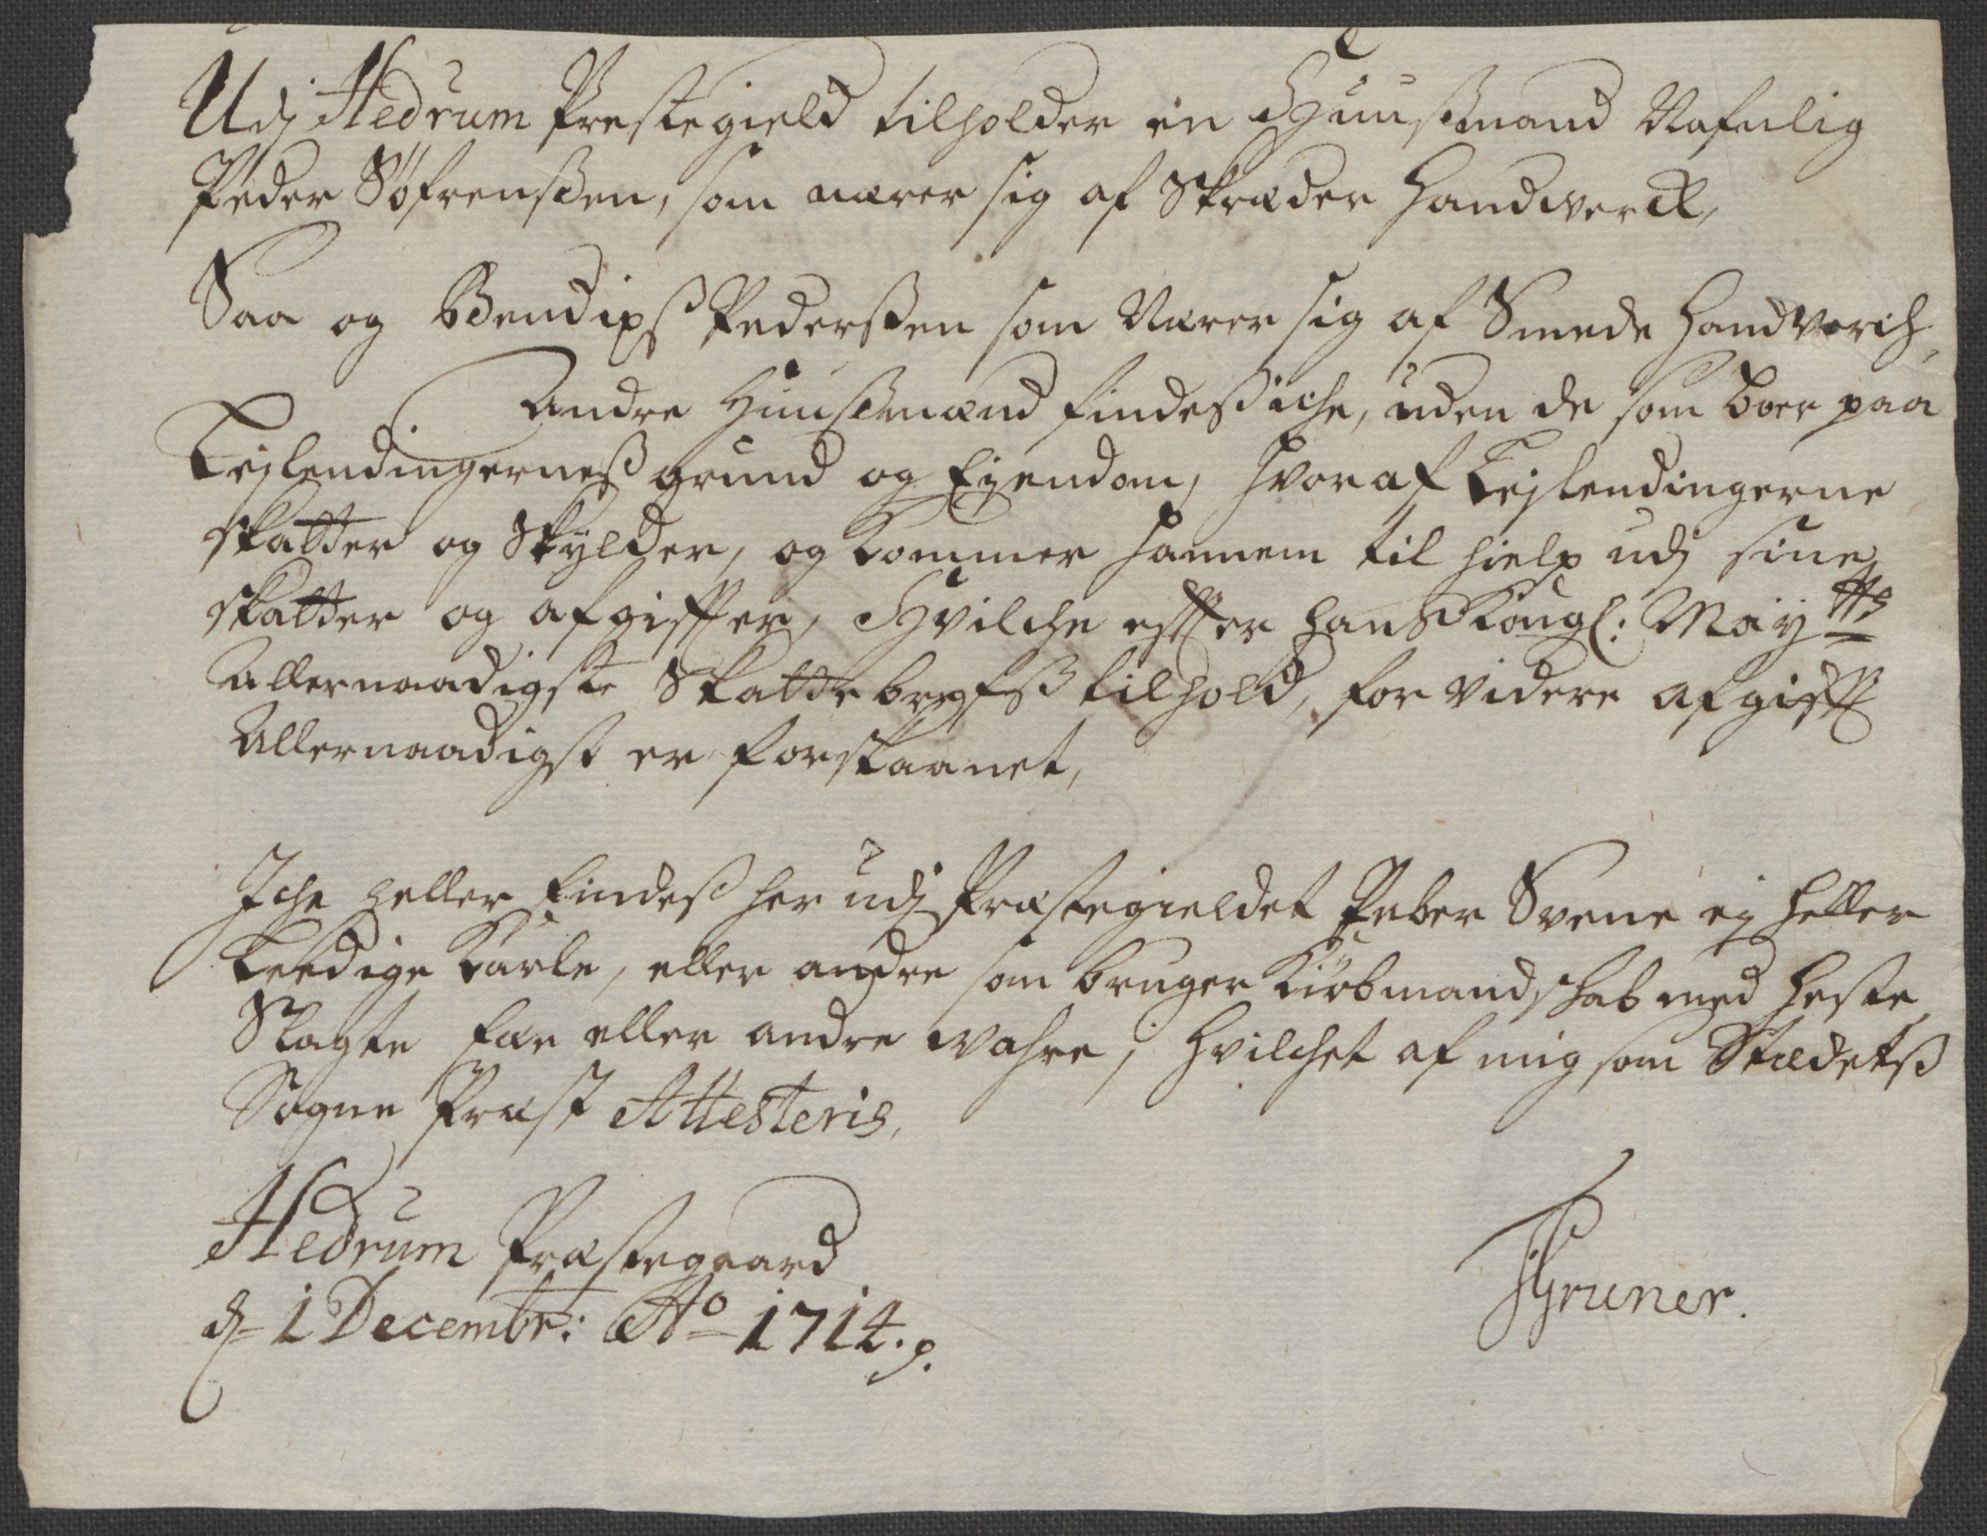 Udj Hedrum Prestegield tilholder en Huußmand Nafnlig
Peder Söfrenßen, som nærer sig af Skræder Handwerck,
Saa og Bendix Pederßen som Nærer sig af Smede Handverch,
Andre Huußmænd findeß iche, uden de som boer paa
Lejlendingerneß grund og Eyendom, hvoraf Lejlendingerne
skatter og Skylder, og kommer hannem til hielp udj sine
skatter og afgiffter, Hvilche effter Hans Kongl: Mayтts
Allernaadigste Skatte brefß tilhold, for videre afgifft
Allernaadigst er forskaanet,
Iche heller findeß her udj Præstegieldet Peber Svene ej heller
Leedige Karle, eller andre som bruger Kiöbmandschab med Heste
Slagte fæe eller andre wahre, Hvilchet af mig som Stædetß
Sogne Præst Attesteris,
Hedrum Præstegaard
d 1 Decembr: Ao 1714. p.
Gruner.